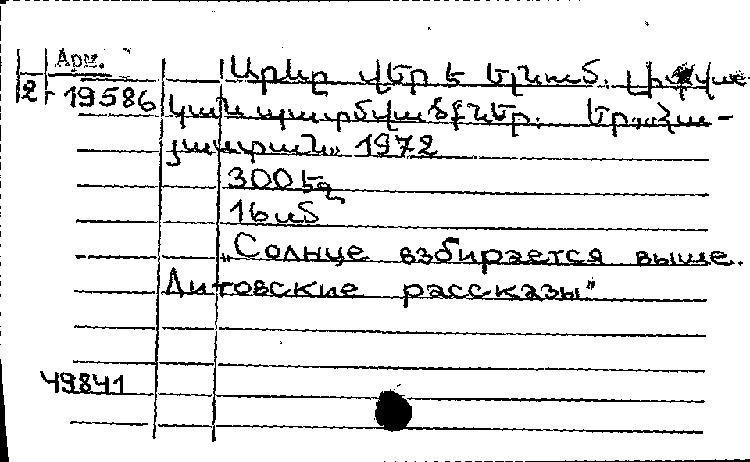 Арм.
2-19586
Արևը վեր է ելնում. Լիտվա-
կան պատմվածքներ. Եր. „Հա-
յաստան» 1972
300 էջ
16 սմ
„Солнце взбирается выше.
Литовские рассказы"
49841